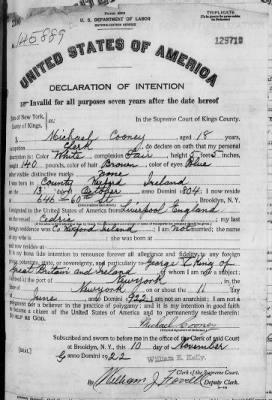 TRIPLICATE
U. S. DEPARTMENT OF LABOR
NATURALIZATION SERVICE
145889
129710
UNITED STATES OF AMERICA
DECLARATION OF INTENTION
Invalid for all purposes seven years after the date hereof
State of New York,
County of Kings,
In the Supreme Court of Kings County.
Michael Cooney, aged 18 years,
occupation Clerk, do declare on oath that my personal
description is: Color White, complexion Fair, height 5 feet inches,
140 pounds, color of hair Brown, color of eyes Blue
visible distinctive marks None
born in County Wexford Ireland
on the 13 day of October, anno Domini 1904; I now reside
at 646 - 60th St, Brooklyn, N. Y.
I emigrated to the United States of America from Liverpool England
on the vessel Cedric; my last
foreign residence was Wexford Ireland; I am not married; the name
of my is; she was born at
and now resides at
It is my bona fide intention to renounce forever all allegiance and fidelity to any foreign
prince, potentate, state, or sovereignty, and particularly to George V King of
Great Britain and Ireland of whom I am now a subject;
I arrived at the port of New York, in the
State of New York on or about the 11 day
of June, anno Domini 1922; I am not an anarchist; I am not a
polygamist nor a believer in the practice of polygamy; and it is my intention in good faith
to become a citizen of the United States of America and to permanently reside therein:
SO HELP ME GOD.
Michael Cooney
Subscribed and sworn to before me in the office of the Clerk of said Court
at Brooklyn, N. Y., this 10 day of November
anno Domini 1922
[SEAL]
William E. Kelly,
Clerk of the Supreme Court.
By William J.
Deputy Clerk.